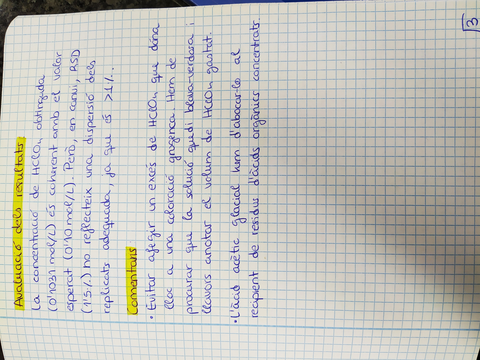 Avaluació dels resultats:
La concentració de HClO4 obtinguda
(0'1031 mol/L) és coherent amb el valor
esperat (0'10 mol/L). Però, en canvi, RSD
(1'5%) no reflecteix una dispersió dels
replicats adequada, ja que és >1%.
Comentaris
• Evitar afegir un excés de HClO4 que dóna
lloc a una coloració grogenca. Hem de
procurar que la solució quedi blava-verdosa i
llavors anotar el volum de HClO4 gastat.
• L'àcid acètic glacial hem d'abocar-lo al
recipient de residus d'àcids orgànics concentrats.
3